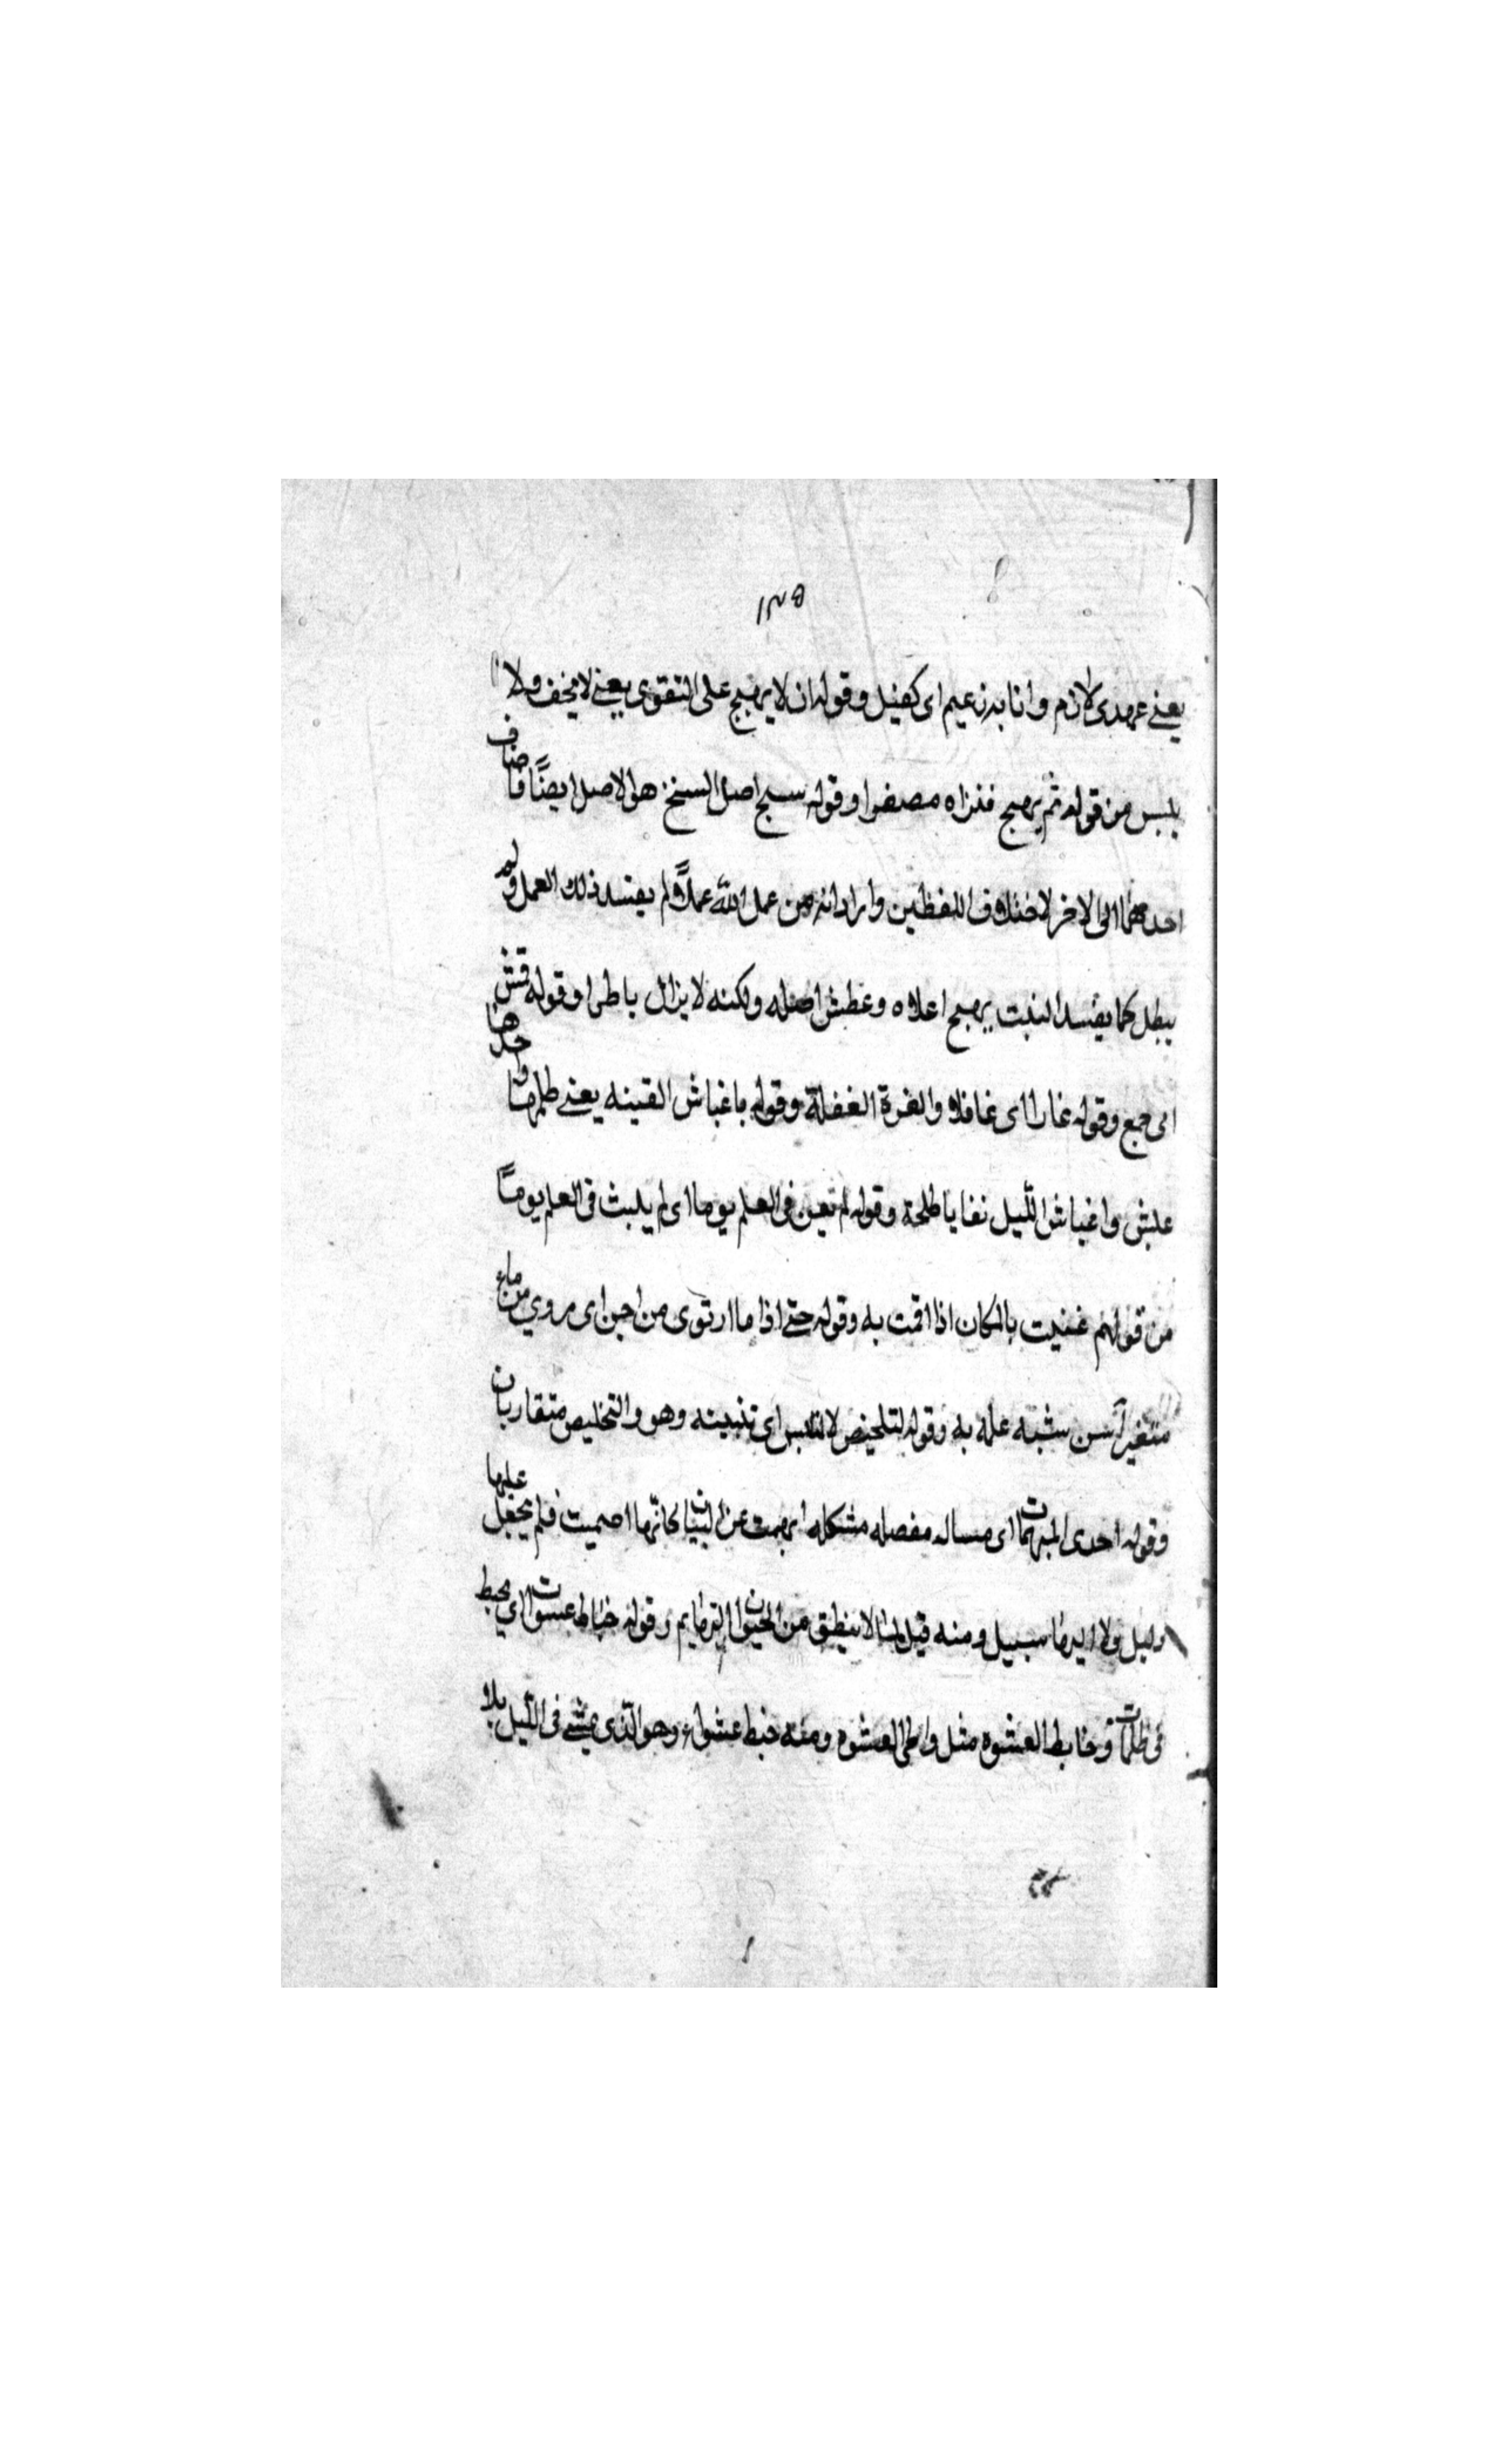 ١٣٥
يعني عهدى لازم وانا به زعيم اى كفيل وقوله ان لا يهيج على التقوى يعنى لا يخف ولا
يلبس من قوله ثم يهيج فتراه مصفرا وقوله سنج اصل السنخ هو الاصل ايضًا فاضاف
احدهما الى الاخر لاختلاف اللفظين واراد انه من عمل لله عملاً لم يفسد ذلك العمل ولم
يبطل كما يفسد النبت يهيج اعلاه وعطش اصله ولكنه لا يزال باطرا وقوله قمش
اى جمع وقوله غارا اى غافلا والغرة الغفلة وقوله باغباش الفتنه يعنى ظلمها واحدها
غبش واغباش الليل بقايا ظلمة وقوله لم تعين فى العلم يوما اى لم يلبث فى العلم يومًا
من قولهم غنيت بالمكان اذا اقمت به وقوله حتى اذا ما ارتوى من اجن اى مروي من ماء
متغير آسن شبه علمه به وقوله لتلخيص لا لتلبس اى تبيينه وهو والتخليص متقاربان
وقوله احدى المبهمات اى مساله مفصله مشكله ابهمت عن البيان كانّها اصميت فلم يجعل عليها
دليل ولا اليها سبيل ومنه قيل لما لا ينطق من الحيوان البهايم وقوله خباط عشوات اي يخبط
فى ظلمات وخابط العشوه مثل واطى العشوه ومنه خبط عشواء وهو الذى يمشى فى الليل بلا